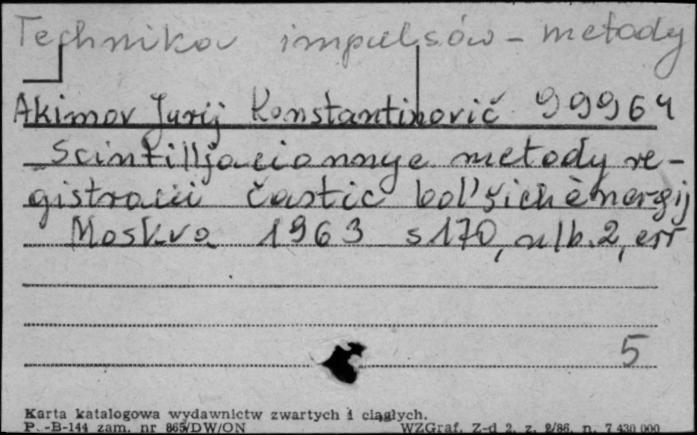 Technika impulsów - metody
Akimov Jurij Konstantinovič 99964
Scintilljacionnye metody re-
gistracii častic bol'šich ènergij
Moskva 1963 s 170, nlb. 2, err
5
Karta katalogowa wydawnictw zwartych i ciągłych.
P. -B-144 zam. nr 865/DW/ON WZGraf. Z-d 2. z. 2/86. n. 7 430 000